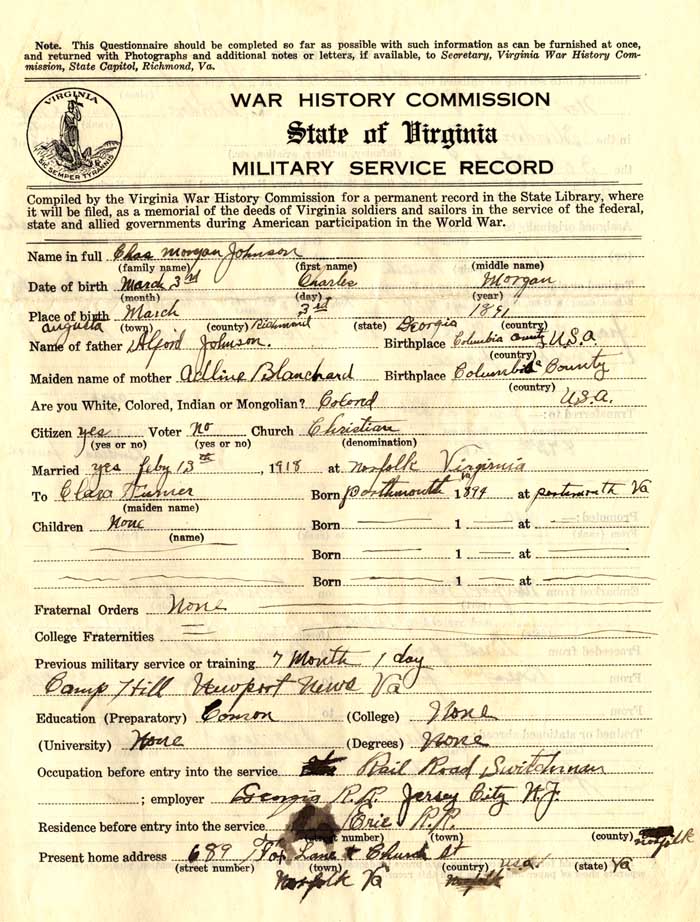 Note. This Questionnaire should be completed so far as possible with such information as can be furnished at once,
and returned with Photographs and additional notes or letters, if available, to Secretary, Virginia War History Com-
mission, State Capitol, Richmond, Va.
VIRGINIA
SIC SEMPER TYRANNIS
WAR HISTORY COMMISSION
State of Virginia
MILITARY SERVICE RECORD
Compiled by the Virginia War History Commission for a permanent record in the State Library, where
it will be filed, as a memorial of the deeds of Virginia soldiers and sailors in the service of the federal,
state and allied governments during American participation in the World War.
Name in full Chas Morgan Johnson
(family name) (first name) (middle name)
Date of birth March 3rd Charles Morgan
(month) (day) (year)
Place of birth March 3rd 1891
Augusta (town) (county) Richmond (state) Georgia (country)
Name of father Alford Johnson. Birthplace Columbia County U.S.a.
(country)
Maiden name of mother Adline Blanchard Birthplace Columbia County
(country)
Are you White, Colored, Indian or Mongolian? Colord U.S.a.
Citizen yes Voter no Church Christian
(yes or no) (yes or no) (denomination)
Married yes Feby 13th, 1918 at Norfolk Virginia
To Clara Turner Born Portsmouth Va 1894 at Portsmouth Va
(maiden name)
Children None Born 1 at
(name)
Born 1 at
Born 1 at
Fraternal Orders None
College Fraternities
Previous military service or training 7 Month 1 day
Camp Hill Newport News Va
Education (Preparatory) Comon (College) None
(University) None (Degrees) None
Occupation before entry into the service Rail Road Switchman
; employer Georgia R.R. Jersey City N.J.
Residence before entry into the service Erie R.R.
(street number) (town) (county) Norfolk
Present home address 689 Fox Lane & Church St USA Va
(street number) (town) (country) (state)
Norfolk Va